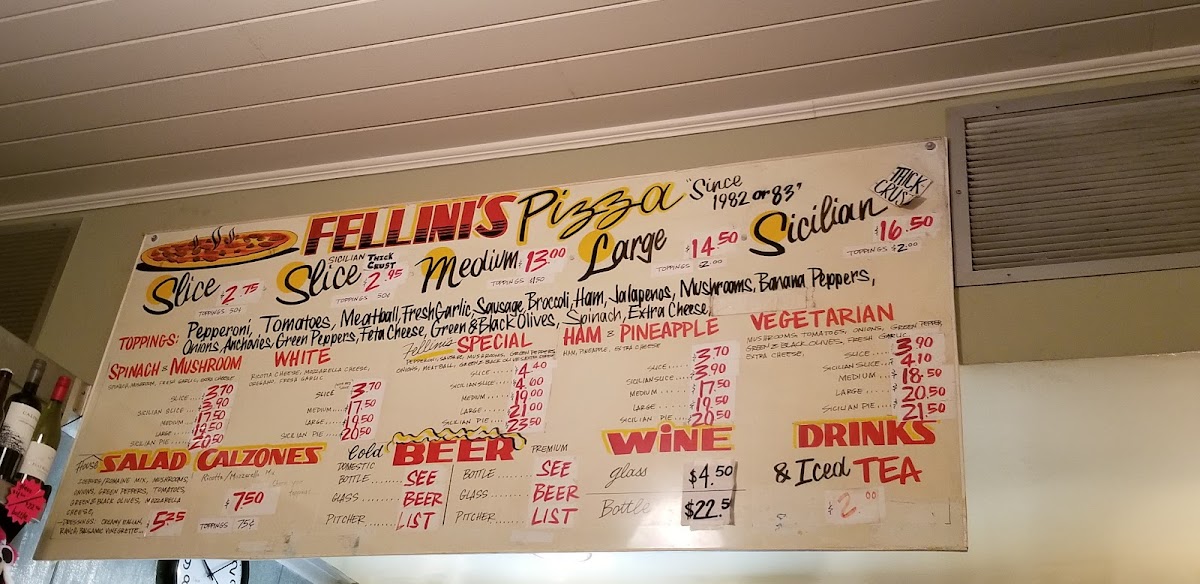 FELLINI'S Pizza "Since 1982 or 83"
THICK CRUST
Slice $2.75
TOPPINGS 50¢
SICILIAN THICK CRUST
Slice $2.95
TOPPINGS 50¢
Medium $13.00
TOPPINGS $1.50
Large $14.50
TOPPINGS $2.00
Sicilian $16.50
TOPPINGS $2.00
TOPPINGS: Pepperoni, Tomatoes, Meatball, Fresh Garlic, Sausage, Broccoli, Ham, Jalapenos, Mushrooms, Banana Peppers,
Onions, Anchovies, Green Peppers, Feta Cheese, Green & Black Olives, Spinach, Extra Cheese,
SPINACH & MUSHROOM
SPINACH, MUSHROOM, FRESH GARLIC, EXTRA CHEESE
SLICE... 3.70
SICILIAN SLICE... 3.90
MEDIUM... 17.50
LARGE... 19.50
SICILIAN PIE... 20.50
WHITE
RICOTTA CHEESE, MOZZARELLA CHEESE,
OREGANO, FRESH GARLIC
SLICE 3.70
MEDIUM.... $17.50
LARGE.... $19.50
SICILIAN PIE.... $20.50
Fellini's SPECIAL
PEPPERONI, SAUSAGE, MUSHROOMS, GREEN PEPPERS,
ONIONS, MEATBALL, GREEN & BLACK OLIVES, EXTRA CHEESE
SLICE.... $4.40
SICILIAN SLICE... $4.60
MEDIUM.... $19.00
LARGE.... $21.00
SICILIAN PIE... $23.50
HAM & PINEAPPLE
HAM, PINEAPPLE, EXTRA CHEESE
SLICE.... $3.70
SICILIAN SLICE.. $3.90
MEDIUM.... $17.50
LARGE.... $19.50
SICILIAN PIE... $20.50
VEGETARIAN
MUSHROOMS, TOMATOES, ONIONS, GREEN PEPPER,
GREEN & BLACK OLIVES, FRESH GARLIC
EXTRA CHEESE,
SLICE.... 3.90
SICILIAN SLICE... 4.10
MEDIUM.... $18.50
LARGE.... $20.50
SICILIAN PIE... $21.50
House SALAD
ICEBERG/ROMAINE MIX, MUSHROOMS,
ONIONS, GREEN PEPPERS, TOMATOES,
GREEN & BLACK OLIVES, MOZZARELLA
CHEESE,
DRESSINGS: CREAMY ITALIAN,
RANCH, BALSAMIC VINEGRETTE...
$5.25
CALZONES
Ricotta/Mozzarella Mix
$7.50
TOPPINGS 75¢
Cold BEER
DOMESTIC
BOTTLE...... SEE
GLASS...... BEER
PITCHER...... LIST
PREMIUM
BOTTLE.... SEE
GLASS..... BEER
PITCHER.... LIST
WINE
glass $4.50
Bottle $22.5
DRINKS
& Iced TEA
$2.00